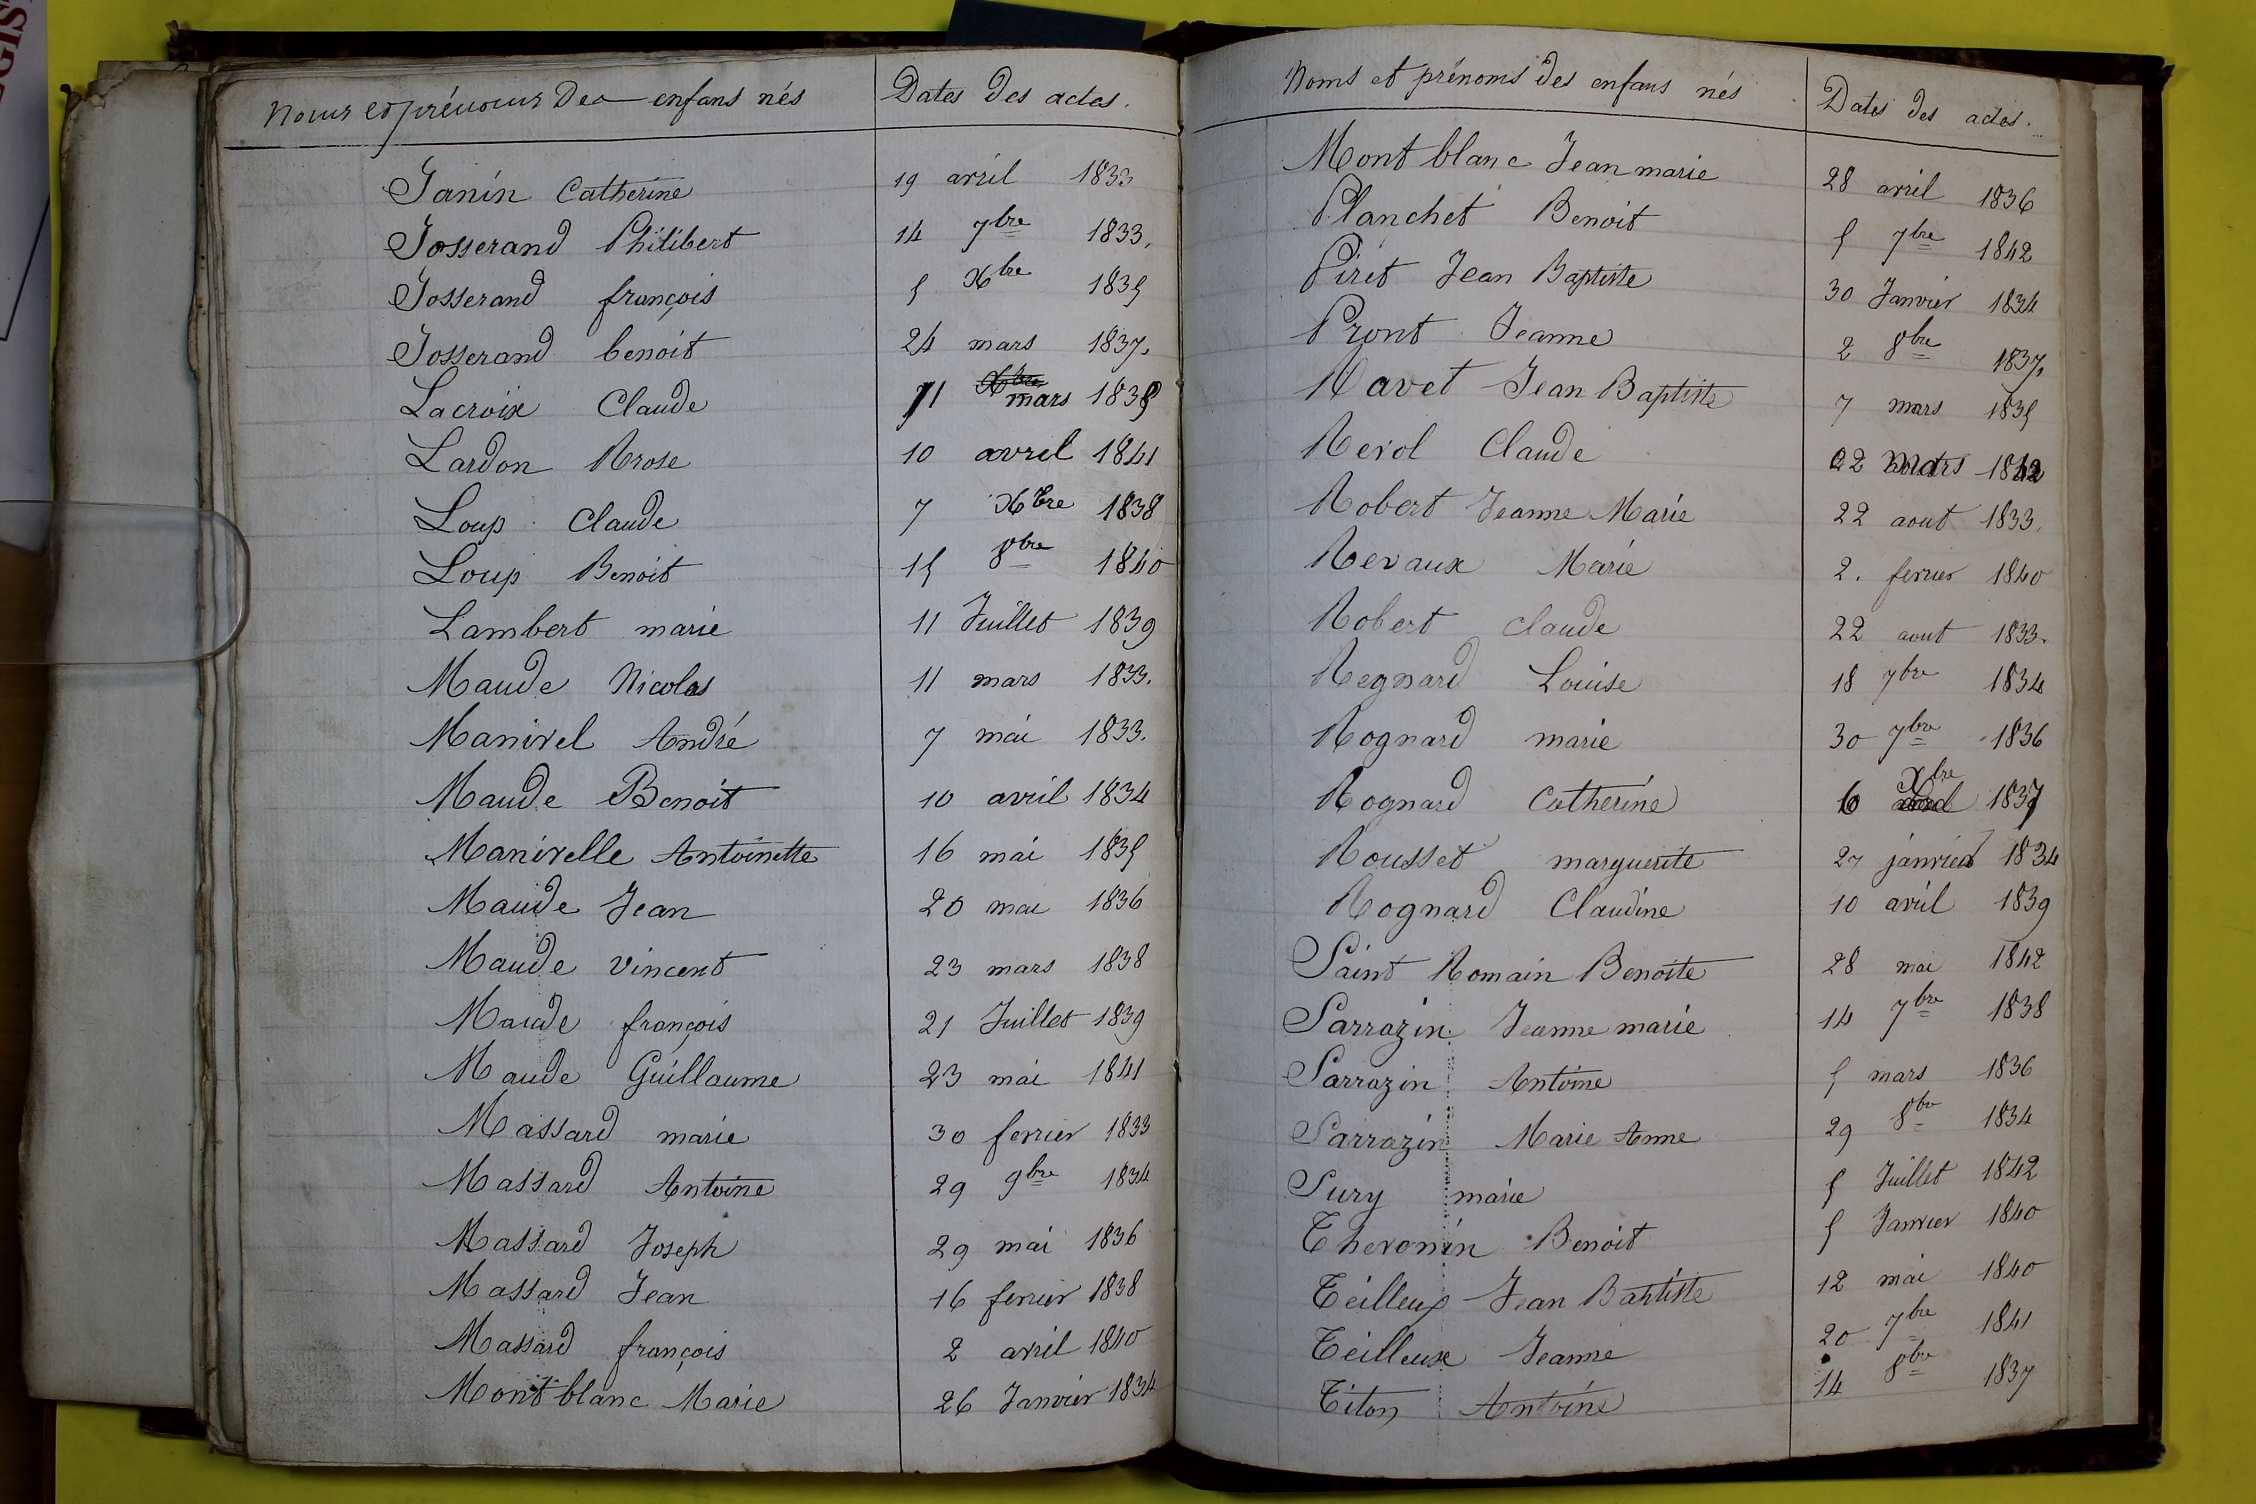 Noms et prénoms des enfans nés Dates des actes.
Janin Catherine 19 avril 1833
Josserand Philibert 14 7bre 1833.
Josserand françois 5 Xbre 1835
Josserand benoit 24 mars 1837.
Lacroix Claude 11 mars 1838
Lardon Rose 10 avril 1841
Loup Claude 7 Xbre 1838
Loup Benoit 15 8bre 1840
Lambert marie 11 Juillet 1839
Maude Nicolas 11 mars 1833.
Manivel André 7 mai 1833.
Maude Benoit 10 avril 1834
Manivelle Antoinette 16 mai 1835
Maude Jean 20 mai 1836
Maude vincent 23 mars 1838
Maude françois 21 Juillet 1839
Maude Guillaume 23 mai 1841
Massard marie 30 fevrier 1833
Massard Antoine 29 9bre 1834
Massard Joseph 29 mai 1836
Massard Jean 16 fevrier 1838
Massard françois 2 avril 1840
Mont blanc Marie 26 Janvier 1834
Noms et prénoms des enfans nés Dates des actes.
Mont blanc Jean marie 28 avril 1836
Planchet Benoit 5 7bre 1842
Piret Jean Baptiste 30 Janvier 1834
Pront Jeanne 2 8bre 1837.
Ravet Jean Baptiste 7 mars 1835
Revol Claude 22 mars 1842
Robert Jeanne Marie 22 aout 1833.
Revaux Marie 2. fevrier 1840
Robert Claude 22 aout 1833.
Regnard Louise 18 7bre 1834
Rognard marie 30 7bre 1836
Rognard Catherine 6 Xbre 1837
Rousset marguerite 27 janvier 1834
Rognard Claudine 10 avril 1839
Saint Romain Benoite 28 mai 1842
Sarrazin Jeanne marie 14 7bre 1838
Sarrazin Antoine 5 mars 1836
Sarrazin Marie Anne 29 8bre 1834
Sury marie 5 Juillet 1842
Thevenin Benoit 5 Janvier 1840
Teilleux Jean Baptiste 12 mai 1840
Teilleux Jeanne 20 7bre 1841
Titon Antoine 14 8bre 1837